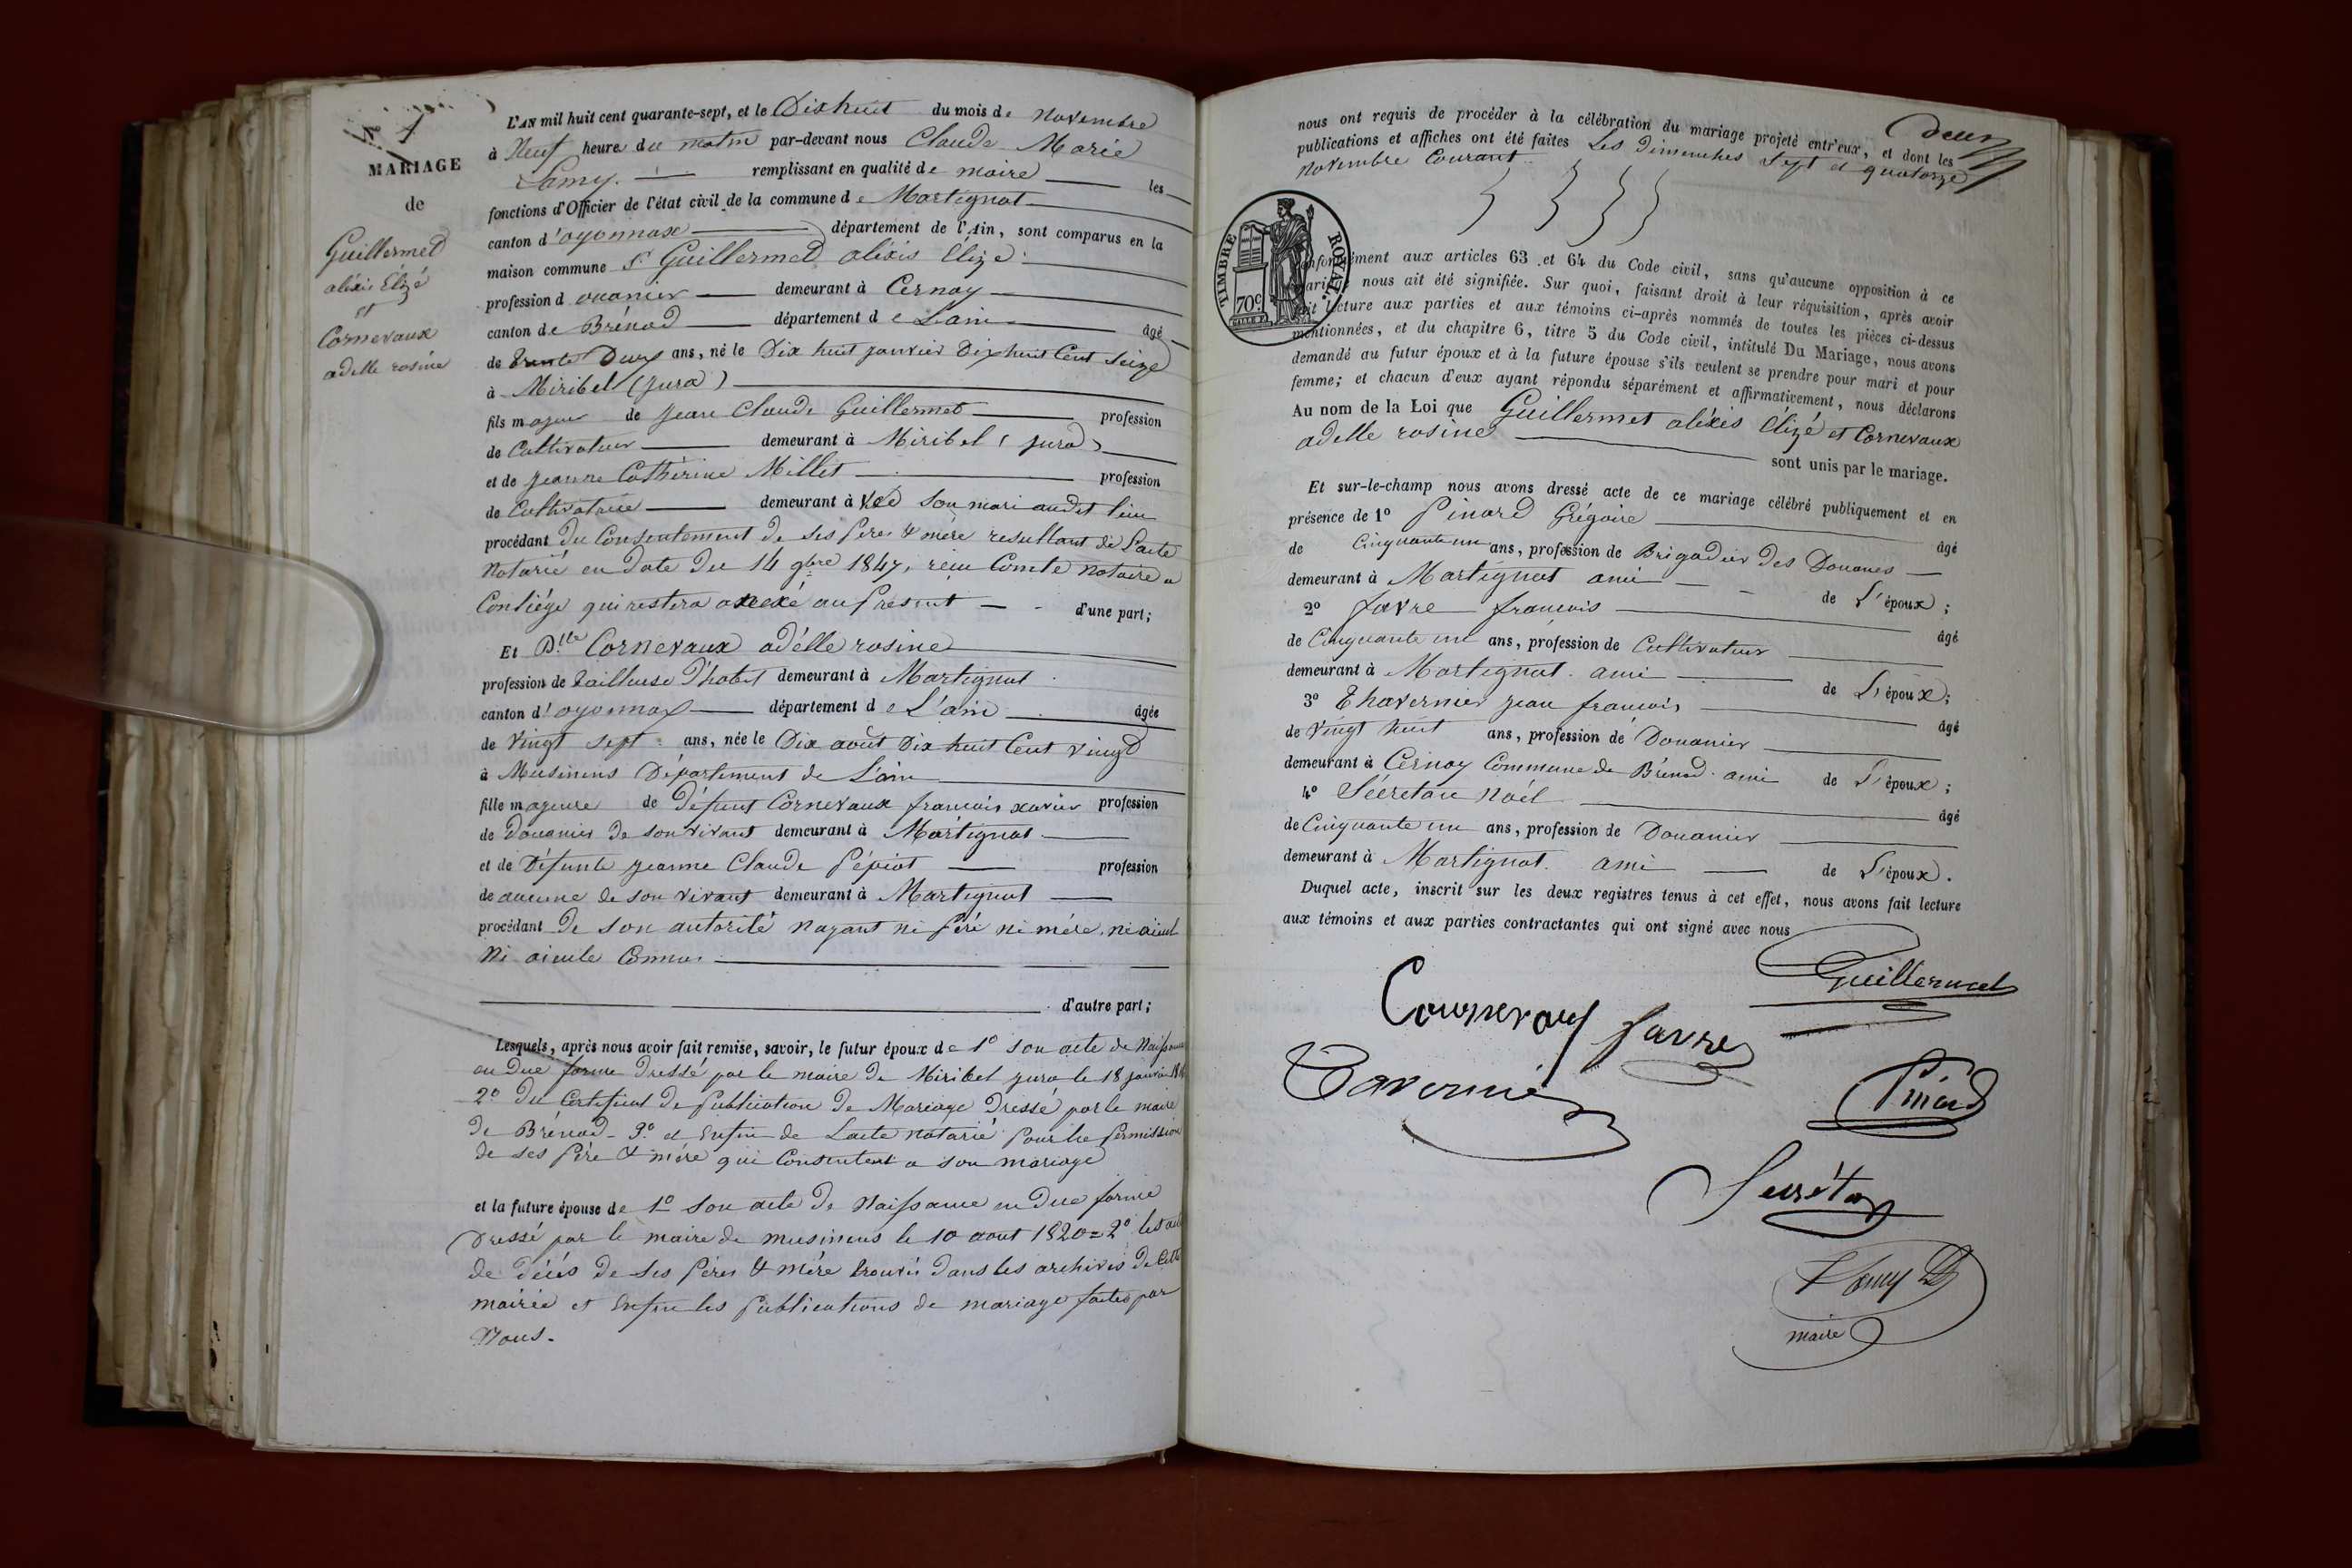 N° 1
MARIAGE
de
Guillermet
aléxis Élizé
et
Cornevaux
adelle rosine
L'AN mil huit cent quarante-sept, et le Dix huit du mois de Novembre
à Neuf heure du matin par-devant nous Claude Marie
Lamy. remplissant en qualité de maire les
fonctions d'Officier de l'état civil de la commune de Martignat
canton d'oyonnax département de l'Ain, sont comparus en la
maison commune Sr Guillermet aléxis Élizé
profession douanier demeurant à Cernay
canton de Brénod département de L'ain âgé
de trente Deux ans, né le Dix huit janvier Dix huit Cent Seize
à Miribel (jura)
fils majeur de jean Claude Guillermet profession
de Cultivateur demeurant à Miribel (jura)
et de jeanne Cathérine Millet profession
de Cultivatrice demeurant à son mari audit lieu
procédant du Consentement de ses père & mère resultant de L'acte
Notarié en Date du 14 9bre 1847, reçu Comte Notaire a
Conliége qui restera anexé au présent d'une part;
Et Dlle Cornevaux adélle rosine
profession de tailleuse D'habit demeurant à Martignat
canton d'oyonnax département de L'ain âgée
de vingt sept ans, née le Dix août Dix huit Cent vingt
à Musinens Département de L'ain
fille majeure de Défunt Cornevaux francois xavier profession
de Douanier de son vivant demeurant à Martignat
et de Défunte jeanne Claude Pépiot profession
de aucune de son vivant demeurant à Martignat
procédant De son autorité nayant ni péré ni mére, ni aieul
Ni aieule Connus
d'autre part;
Lesquels, après nous avoir fait remise, savoir, le futur époux de 1° son acte de Naissance
en Due forme Dressé par le maire De Miribel jura le 18 janvier
2° Du Certificat De Publication De Mariage Dressé par le maire
De Brénod - 3° et Enfin de Lacte notarié Pour la permission
de ses Péré & mére qui Consentent a son mariage
et la future épouse de 1° Son acte De Naissance en Due forme
Dressé par le maire de musinens le 10 aout 1820 = 2° les
de Décès De Ses Péres & Mére trouvés Dans les archives De Cette
mairie et Enfin les Publications de mariage faites par
Nous.
Deux
nous ont requis de procéder à la célébration du mariage projeté entr'eux, et dont les
publications et affiches ont été faites Les Dimanches Sept et quatorze
Novembre Courant
TIMBRE ROYAL.
70c
conformément aux articles 63 et 64 du Code civil, sans qu'aucune opposition à ce
mariage nous ait été signifiée. Sur quoi, faisant droit à leur réquisition, après avoir
fait lecture aux parties et aux témoins ci-après nommés de toutes les pièces ci-dessus
mentionnées, et du chapitre 6, titre 5 du Code civil, intitulé Du Mariage, nous avons
demandé au futur époux et à la future épouse s'ils veulent se prendre pour mari et pour
femme; et chacun d'eux ayant répondu séparément et affirmativement, nous déclarons
Au nom de la Loi que Guillermet aléxis Élizé et Cornevaux
adelle rosine
sont unis par le mariage.
Et sur-le-champ nous avons dressé acte de ce mariage célébré publiquement et en
présence de 1° Pinard Grégoire âgé
de Cinquante un ans, profession de Brigadier Des Douanes
demeurant à Martignat ami de L'époux;
2° favre francois âgé
de Cinquante un ans, profession de Cultivateur
demeurant à Martignat. ami de L'époux;
3° Thavernier jean francois âgé
de vingt huit ans, profession de Douanier
demeurant à Cernay Commune de Brénod. ami de L'époux;
4° Sécretan Noél âgé
de Cinquante un ans, profession de Douanier
demeurant à Martignat. ami de L'époux.
Duquel acte, inscrit sur les deux registres tenus à cet effet, nous avons fait lecture
aux témoins et aux parties contractantes qui ont signé avec nous
Guillermet
favre
Tavernier
Pinard
Secrétan
Lamy
maire